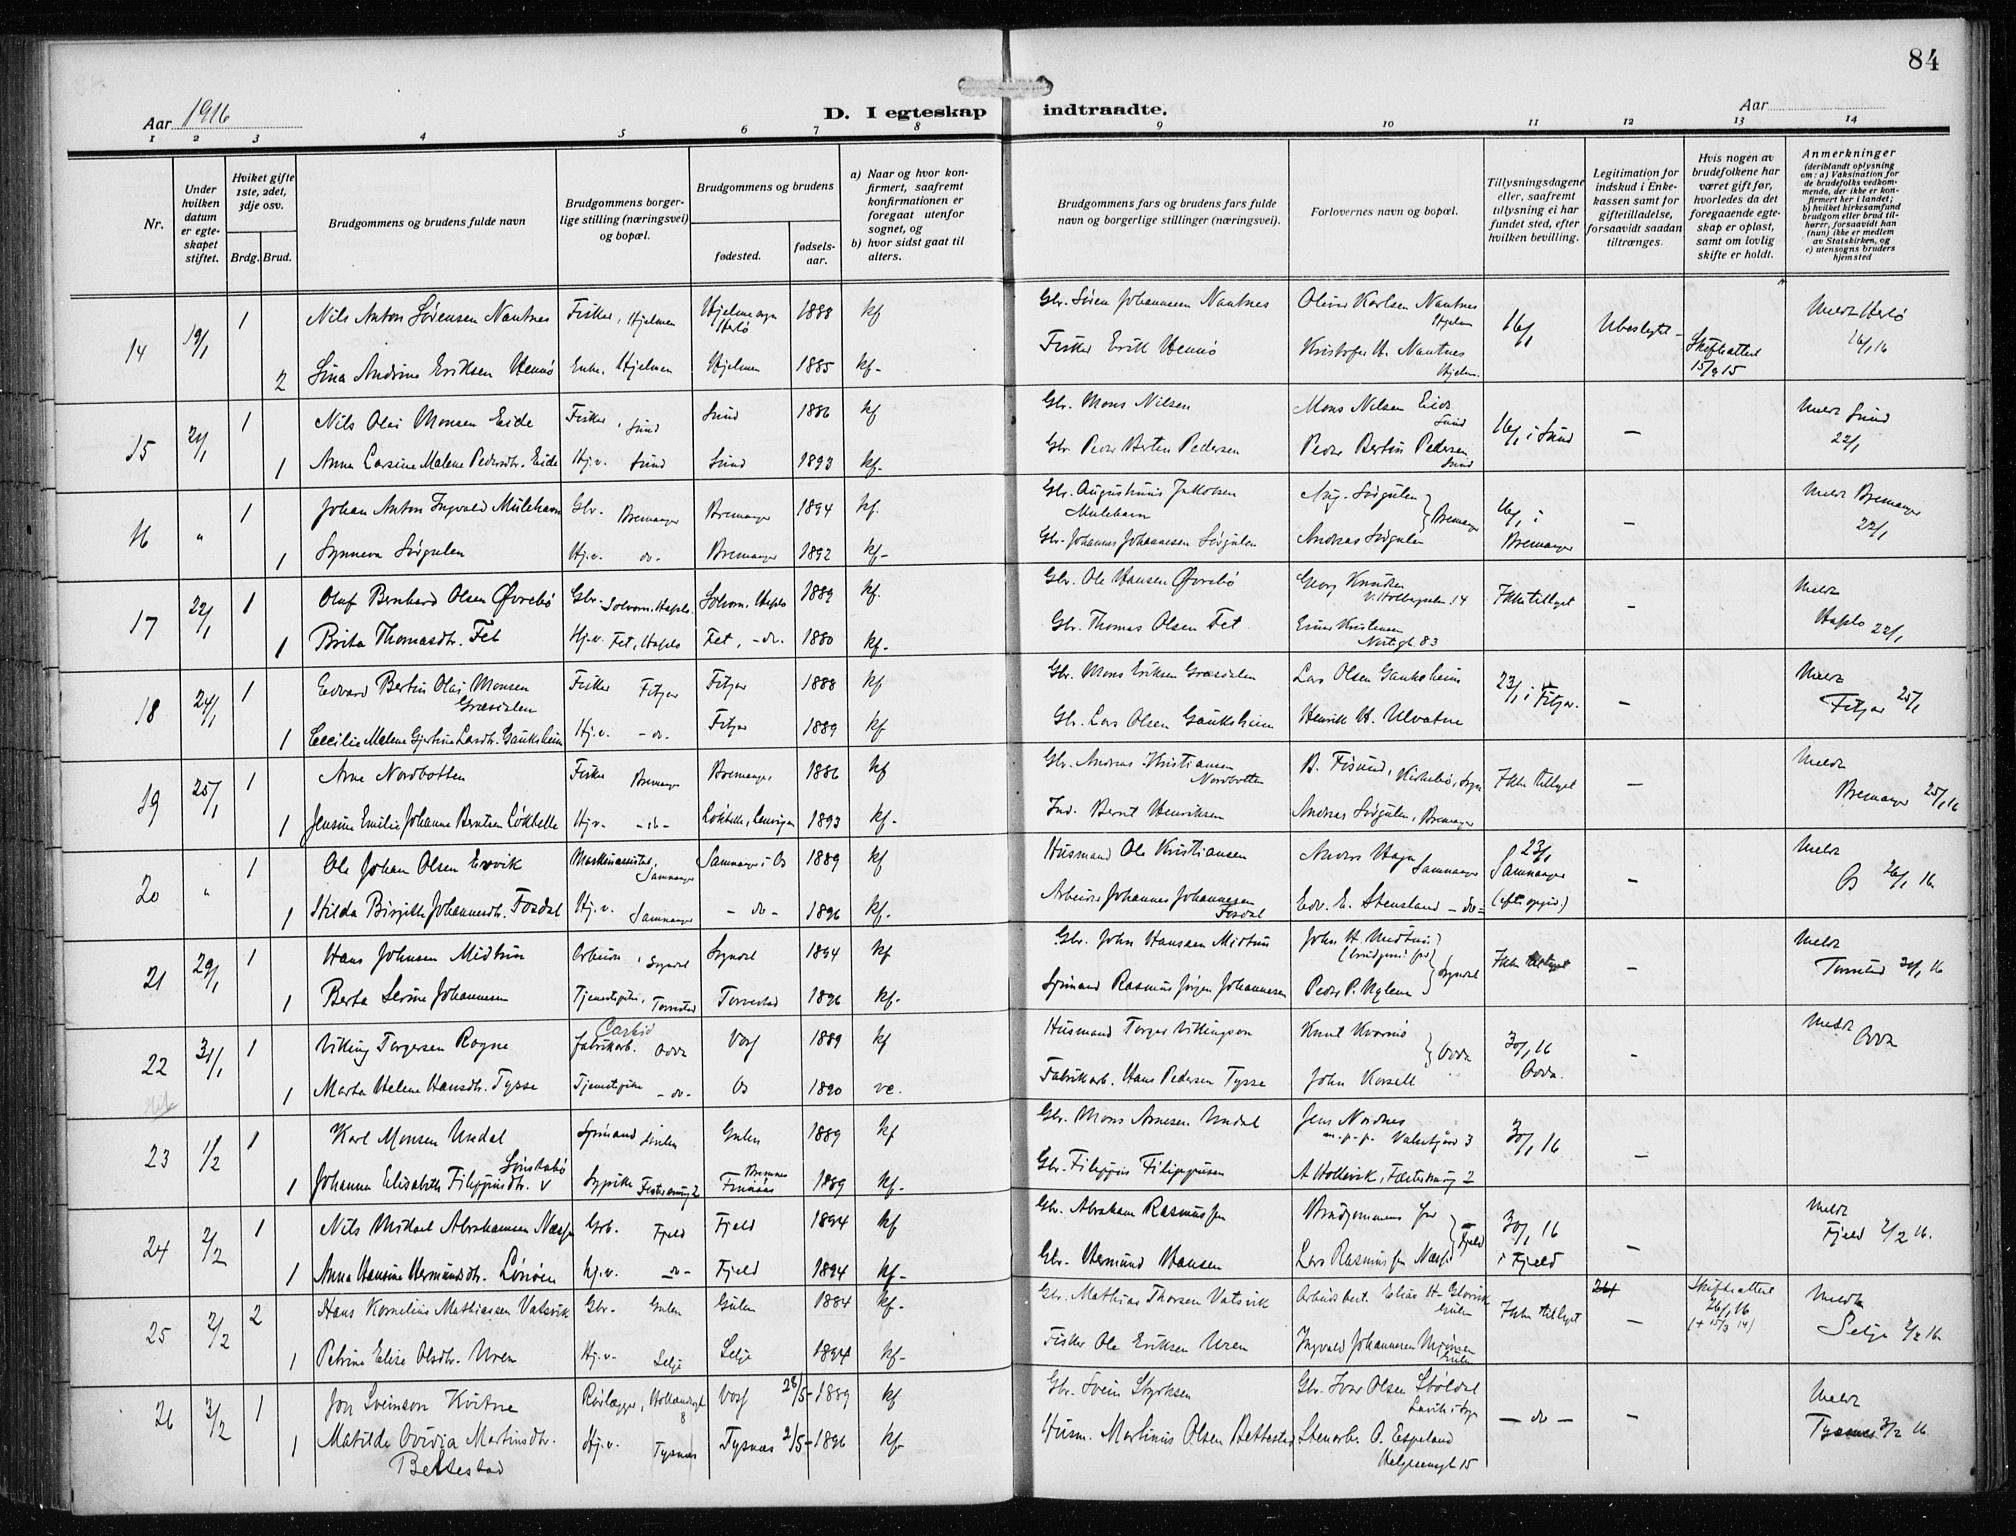 84
Aar 1916
D. I egteskap indtraadte.
Aar
1 2 3 4 5 6 7 8 9 10 11 12 13 14
Nr.
Under hvilken datum er egteskapet stiftet.
Hviket gifte 1ste, 2det, 3dje osv.
Brdg. Brud.
Brudgommens og brudens fulde navn
Brudgommens borgerlige stilling (næringsvei) og bopæl.
Brudgommens og brudens
fødested.
fødselsaar.
a) Naar og hvor konfirmert, saafremt konfirmationen er foregaat utenfor sognet, og
b) hvor sidst gaat til alters.
Brudgommens fars og brudens fars fulde navn og borgerlige stillinger (næringsvei).
Forlovernes navn og bopæl.
Tillysningsdagene eller, saafremt tillysning ei har fundet sted, efter hvilken bevilling.
Legitimation for indskud i Enkekassen samt for giftetilladelse, forsaavidt saadan tiltrænges.
Hvis nogen av brudefolkene har været gift før, hvorledes da det foregaaende egteskap er opløst, samt om lovlig skifte er holdt.
Anmerkninger
(deriblandt oplysning om: a) Vaksination for de brudefolks vedkommende, der ikke er konfirmert her i landet; b) hvilket kirkesamfund brudgom eller brud tilhører, forsaavidt han (hun) ikke er medlem av Statskirken, og c) utensogns bruders hjemsted
14 19/1 1 Nils Anton Sørensen Nautnes Fisker, Hjelmen Hjelme sogn Herlø 1888 kf Gbr. Søren Johannesen Nautnes Oliver Karlsen Nautnes Hjelm 16/1 Ubeslegtet Meldt Herlø 16/1 16
2 Sina Andrine Eriksen Hennø Enke, Hjelmen Hjelmen 1885 kf- Fisker Erik Hennø Kristofer H. Nautnes Hjelm. Skifteattest 15/2 15
15 21/1 1 Nils Olai Monsen Eide Fisker, Sund Sund 1886 kf Gbr. Mons Nilsen Mons Nilsen Eide Sund 16/1 i Sund — Meldt Sund 22/1
1 Anna Larsine Malene Pedersdtr. Eide Hj.v. Sund Sund 1893 kf- Gbr Peder Bertin Pedersen Peder Bertin Pedersen Sund
16 " 1 Johan Anton Ingvald Mulehavn Gbr. Bremanger Bremanger 1894 kf. Gbr. Augustinus Jakobsen Mulehavn Aug. Sørgulen Bremanger 16/1 i Bremanger — Meldt Bremanger 22/1
1 Synneva Sørgulen Hj.v. do- Bremanger 1892 kf- Gbr. Johannes Johannesen Sørgulen Andreas Sørgulen
17 22/1 1 Oluf Bernhard Olsen Øvrebø Gbr. Solvorn. Hafslo Solvorn. Hafslo 1889 kf. Gbr. Ole Hansen Øvrebø Georg Knudsen V. Holbergsalm. 14 Ikke tillyst — Meldt Hafslo 22/1
1 Brita Thomasdtr. Fet Hj.v. Fet, Hafslo Fet, -do- 1880 kf- Gbr. Thomas Olsen Fet Kristensen 83
18 24/1 1 Edvard Bertin Olai Monsen Græsdalen Fisker Fitjar Fitjar 1888 kf Gbr. Mons Eriksen Græsdalen Lars Olsen Gauksheim 23/1 i Fitjar. — Meldt Fitjar 25/1
1 Cecilie Malene Gjertine Larsdtr. Gauksheim Hj.v. -do- Fitjar 1889 kf Gbr. Lars Olsen Gauksheim Henrik H. Ulvatne
19 25/1 1 Arne Nordbotten Fisker Bremanger Bremanger 1886 kf Gbr. Andreas Kristiansen Nordbotten B. Fosund, Kirkebø, Sogn Ikke tillyst — Meldt Bremanger 25/1 16
1 Jensine Emilie Johanne Berntsen Løkkelle Hj.v. -do- 1893 kf- Ind. Bernt Henriksen Andreas Sørgulen, Bremanger
20 " 1 Ole Johan Olsen Ervik Maskinassistent, Samnanger Samnanger i Os 1889 kf Husmand Ole Kristiansen Anders Hagn Samnanger 23/1 Samnanger (efter opgiv.) — Meldt Os 26/1 16
1 Hilda Birgithe Johannesdtr. Fosdal Hj.v. Samnanger -do- 1896 kf- Arbeider Johannes Johannesen Fosdal Edv. E. Stensland -do-
21 29/1 1 Hans Johnsen Midtun Arbeider, Sogndal Sogndal 1894 kf Gbr. John Hanssen Midtun John H. Midtun (brudgommens far) Sogndal Ikke tillyst — Meldt Torvestad 31/1 16
1 Berta Serine Johannesen Tjenestepike, Torvestad Torvestad 1896 kf- Sjømand Rasmus Jørgen Johannesen Peder P. Uglem
22 31/1 1 Viking Torgersen Rogne Carbid Fabrikarb. Odda Voss 1889 kf Husmand Torger Vikingson Knut Kvarmø Odda 30/1 16 Odda. — Meldt Odda
1 Marta Helene Hansdtr. Tysse Tjenestepike -do- Os 1890 ve. Fabrikarb. Hans Pedersen Tysse John Korsell
23 1/2 1 Karl Monsen Undal Sjømand Gulen Gulen 1889 kf Gbr. Mons Arnesen Undal Jens Nordnes 3 30/1 16 —
1 Johanna Elisabeth Filippusdtr. Sønstabø Sypike 2 Bremnes Finnaas 1889 kf- Gbr. Filippus Filippussen A Hollevik, 2
24 2/2 1 Nils Mikael Abrahamsen Næsse Gbr. Fjeld Fjeld 1894 kf Gbr. Abraham Rasmussen Brudgommens far Fjeld 30/1 16 i Fjeld — Meldt Fjeld 2/2 16.
1 Anna Hansine Hermundsdtr. Lønøen hj.v. -do- Fjeld 1894 kf- Gbr. Hermund Hansen Lars Rasmussen Næsse
25 2/2 2 Hans Kornelius Mathiassen Vatsvik Gbr. Gulen Gulen 1884 kf- Gbr. Mathias Thorsen Vatsvik Arbeidsbest. Elias H. Glosvik Gulen Ikke tillyst — Skifteattest 26/1 16 (+ 15/3 14) Meldt Selje 2/2 16
1 Petrine Elise Olsdtr. Uren Hj.v. Selje Selje 1894 kf- Fisker Ole Eriksen Uren Ingvald Johannesen Mjømen Gulen
26 3/2 1 Jon Sveinson Kvitne Rørlægger, Hollendergt 8 Voss 28/5-1889 kf Gbr. Svein Styrksen Gbr. Ivar Olsen Støldal Lavik i Sogn -do- — Meldt Tysnes 3/2 16
1 Matilde Ovidia Martinsdtr. Bettestad Hj.v. Tysnas Tysnæs 2/5-1896 kf- Husm. Martinus Olsen Bettestad Stenarb. O. Espeland 15